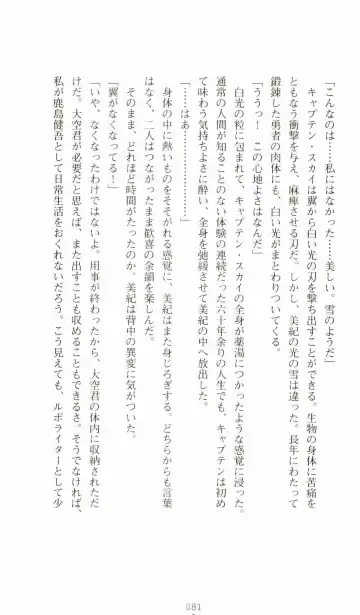 「こんなのは……私にはなかった……美しい。雪のようだ」
キャプテン・スカイは翼から白い光の刃を撃ち出すことができる。生物の身体に苦痛を
ともなう衝撃を与え、麻痺させる刃だ。しかし、美紀の光の雪は違った。長年にわたって
鍛錬した勇者の肉体にも、白い光がまとわりついてくる。
「ううっ！　この心地よさはなんだ」
白光の粒に包まれて、キャプテン・スカイの全身が薬湯につかったような感覚に浸った。
通常の人間が知ることのない体験の連続だった六十年余りの人生でも、キャプテンは初め
て味わう気持ちよさに酔い、全身を弛緩させて美紀の中へ放出した。
「……はあ………………」
身体の中に熱いものをそそがれる感覚に、美紀はまた身じろぎする。どちらからも言葉
はなく、二人はつながったまま歓喜の余韻を楽しんだ。
そのまま、どれほど時間がたったのか。美紀は背中の異変に気がついた。
「翼がなくなってる！」
「いや、なくなったわけではないよ。用事が終わったから、大空君の体内に収納されただ
けだ。大空君が必要だと思えば、また出すことも収めることもできるさ。そうでなければ、
私が鹿島健吾として日常生活をおくれないだろう。こう見えても、ルポライターとして少
081